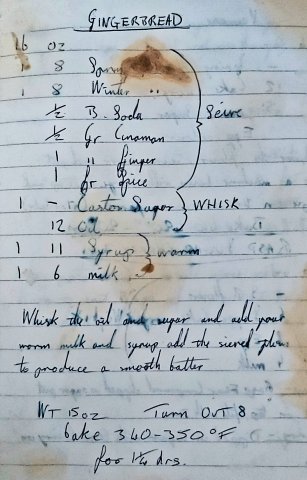 GINGERBREAD
lb oz
1 8 Spring
1 8 Winter "
½ B. Soda
½ Gr Cinaman
1 " Ginger
1 Gr Spice
Seive
1 - Castor Sugar
12 Oil
WHISK
1 11 Syrup
1 6 milk
warm
Whisk the oil and sugar and add your
warm milk and syrup add the sieved flour
to produce a smooth batter
WT 15oz Turn OUT 8
bake 340-350°F
for 1¼ hrs.